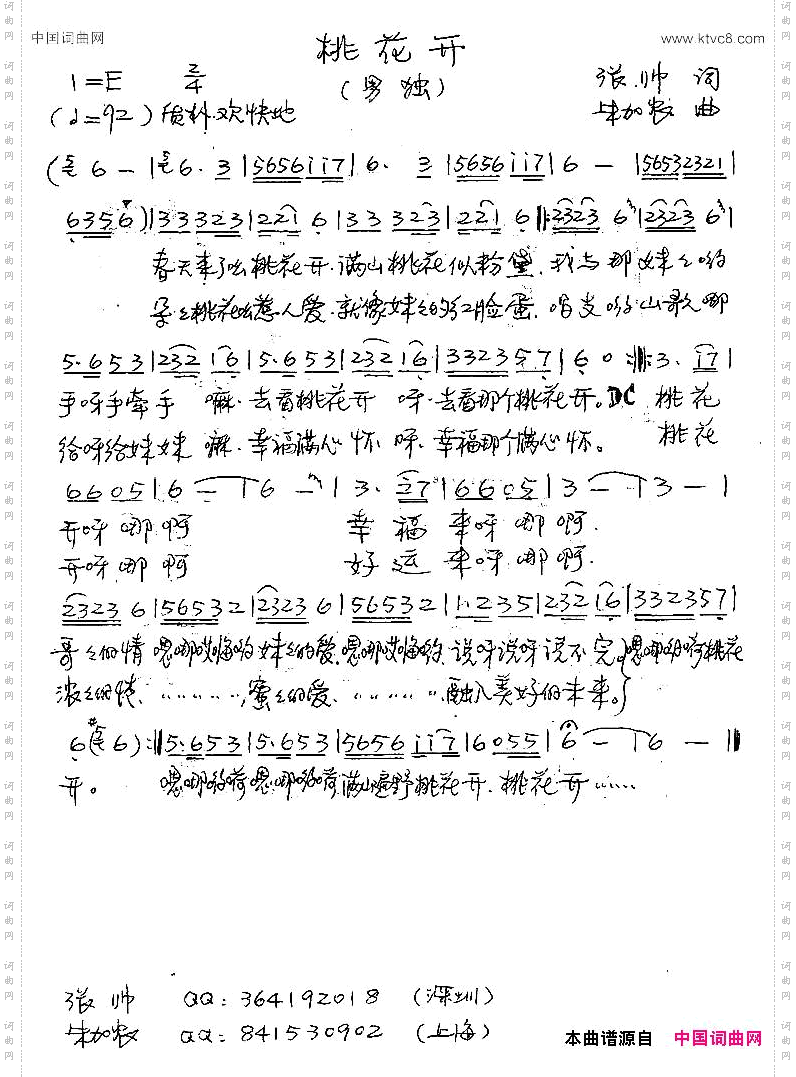 中国词曲网
www.ktvc8.com
桃花开
(男独)
1=E 2/4
张帅 词
朱加农 曲
(♩=92) 质朴.欢快地
(6 - | 6· 3 | 5656 i i 7 | 6· 3 | 5656 i i 7 | 6 - | 56532321 |
6356) | 33323 | 221 6 | 33 323 | 221 6 |: 2323 6 | 2323 6 |
春天来了么桃花开.满山桃花似粉黛.我与那妹々哟
朵々桃花么惹人爱.就像妹々的红脸蛋.唱支哟山歌哪
5·653 | 232 16 | 5·653 | 232 16 | 332357 | 6 0 :|: 3· i7 |
手呀手牵手 嘛.去看桃花开 呀.去看那个桃花开。DC 桃花
给呀给妹妹 嘛.幸福满心怀 呀.幸福那个满心怀。 桃花
6605 | 6 - | 6 - | 3· 27 | 6605 | 3 - | 3 - |
开呀哪啊 幸福来呀哪啊.
开呀哪啊 好运来呀哪啊.
2323 6 | 56532 | 2323 6 | 56532 | 1·235 | 232 16 | 332357 |
哥々的情 嗯哪哎 妹々的爱.嗯哪哎 说呀说呀说不完。嗯哪 桃花
浓々的情、………,蜜々的爱、……….融入美好的未来。}
6 (6) :|| 5·653 | 5·653 | 5656 i i 7 | 6055 | 6 - | 6 - ||
开。 嗯哪哟荷嗯哪哟荷满山遍野桃花开.桃花开……
张帅 QQ: 364192018 (深圳)
朱加农 QQ: 841530902 (上海)
本曲谱源自 中国词曲网